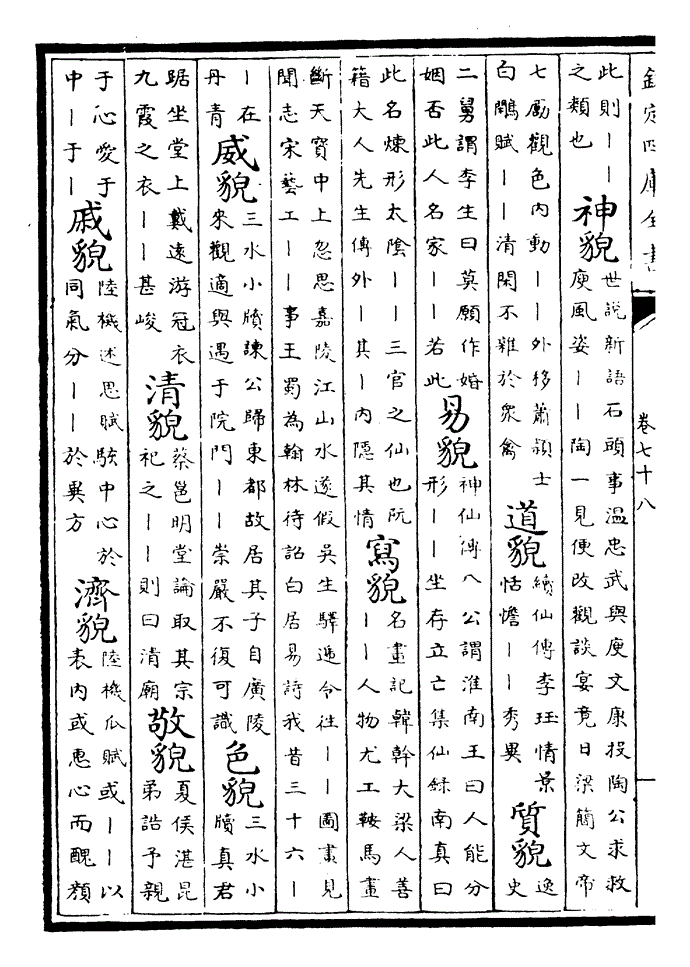 欽定四庫全書 卷七十八 一
此則丨丨之類也神貌世說新語石頭事溫忠武與庾文康投陶公求救庾風姿丨丨陶一見便改觀談宴竟日梁簡文帝
七勵觀色內動丨丨外移蕭頴士白鷴賦丨丨清閑不雜於衆禽道貌續仙傳李珏情景恬憺丨丨秀異質貌逸史
二舅謂李生曰莫願作婚姻否此人名家丨丨若此易貌神仙傳八公謂淮南王曰人能分形丨丨坐存立亡集仙錄南真曰
此名煉形太陰丨丨三官之仙也阮籍大人先生傳外丨其丨內隱其情寫貌名畫記韓幹大梁人善丨丨人物尤工鞍馬畫
斷天寶中上忽思嘉陵江山水遂假吳生驛遞令往丨丨圖畫見聞志宋藝工丨丨事王蜀為翰林待詔白居易詩我昔三十六丨
丨在丹青威貌三水小牘諫公歸東都故居其子自廣陵來觀適與遇于院門丨丨崇嚴不復可識色貌三水小牘真君
踞坐堂上戴遠游冠衣九霞之衣丨丨甚峻清貌蔡邕明堂論取其宗祀之丨丨則曰清廟敬貌夏侯湛昆弟誥予親
于心愛于中丨于丨戚貌陸機述思賦駭中心於同氣分丨丨於異方濟貌陸機瓜賦或丨丨以表內或惠心而醜顔